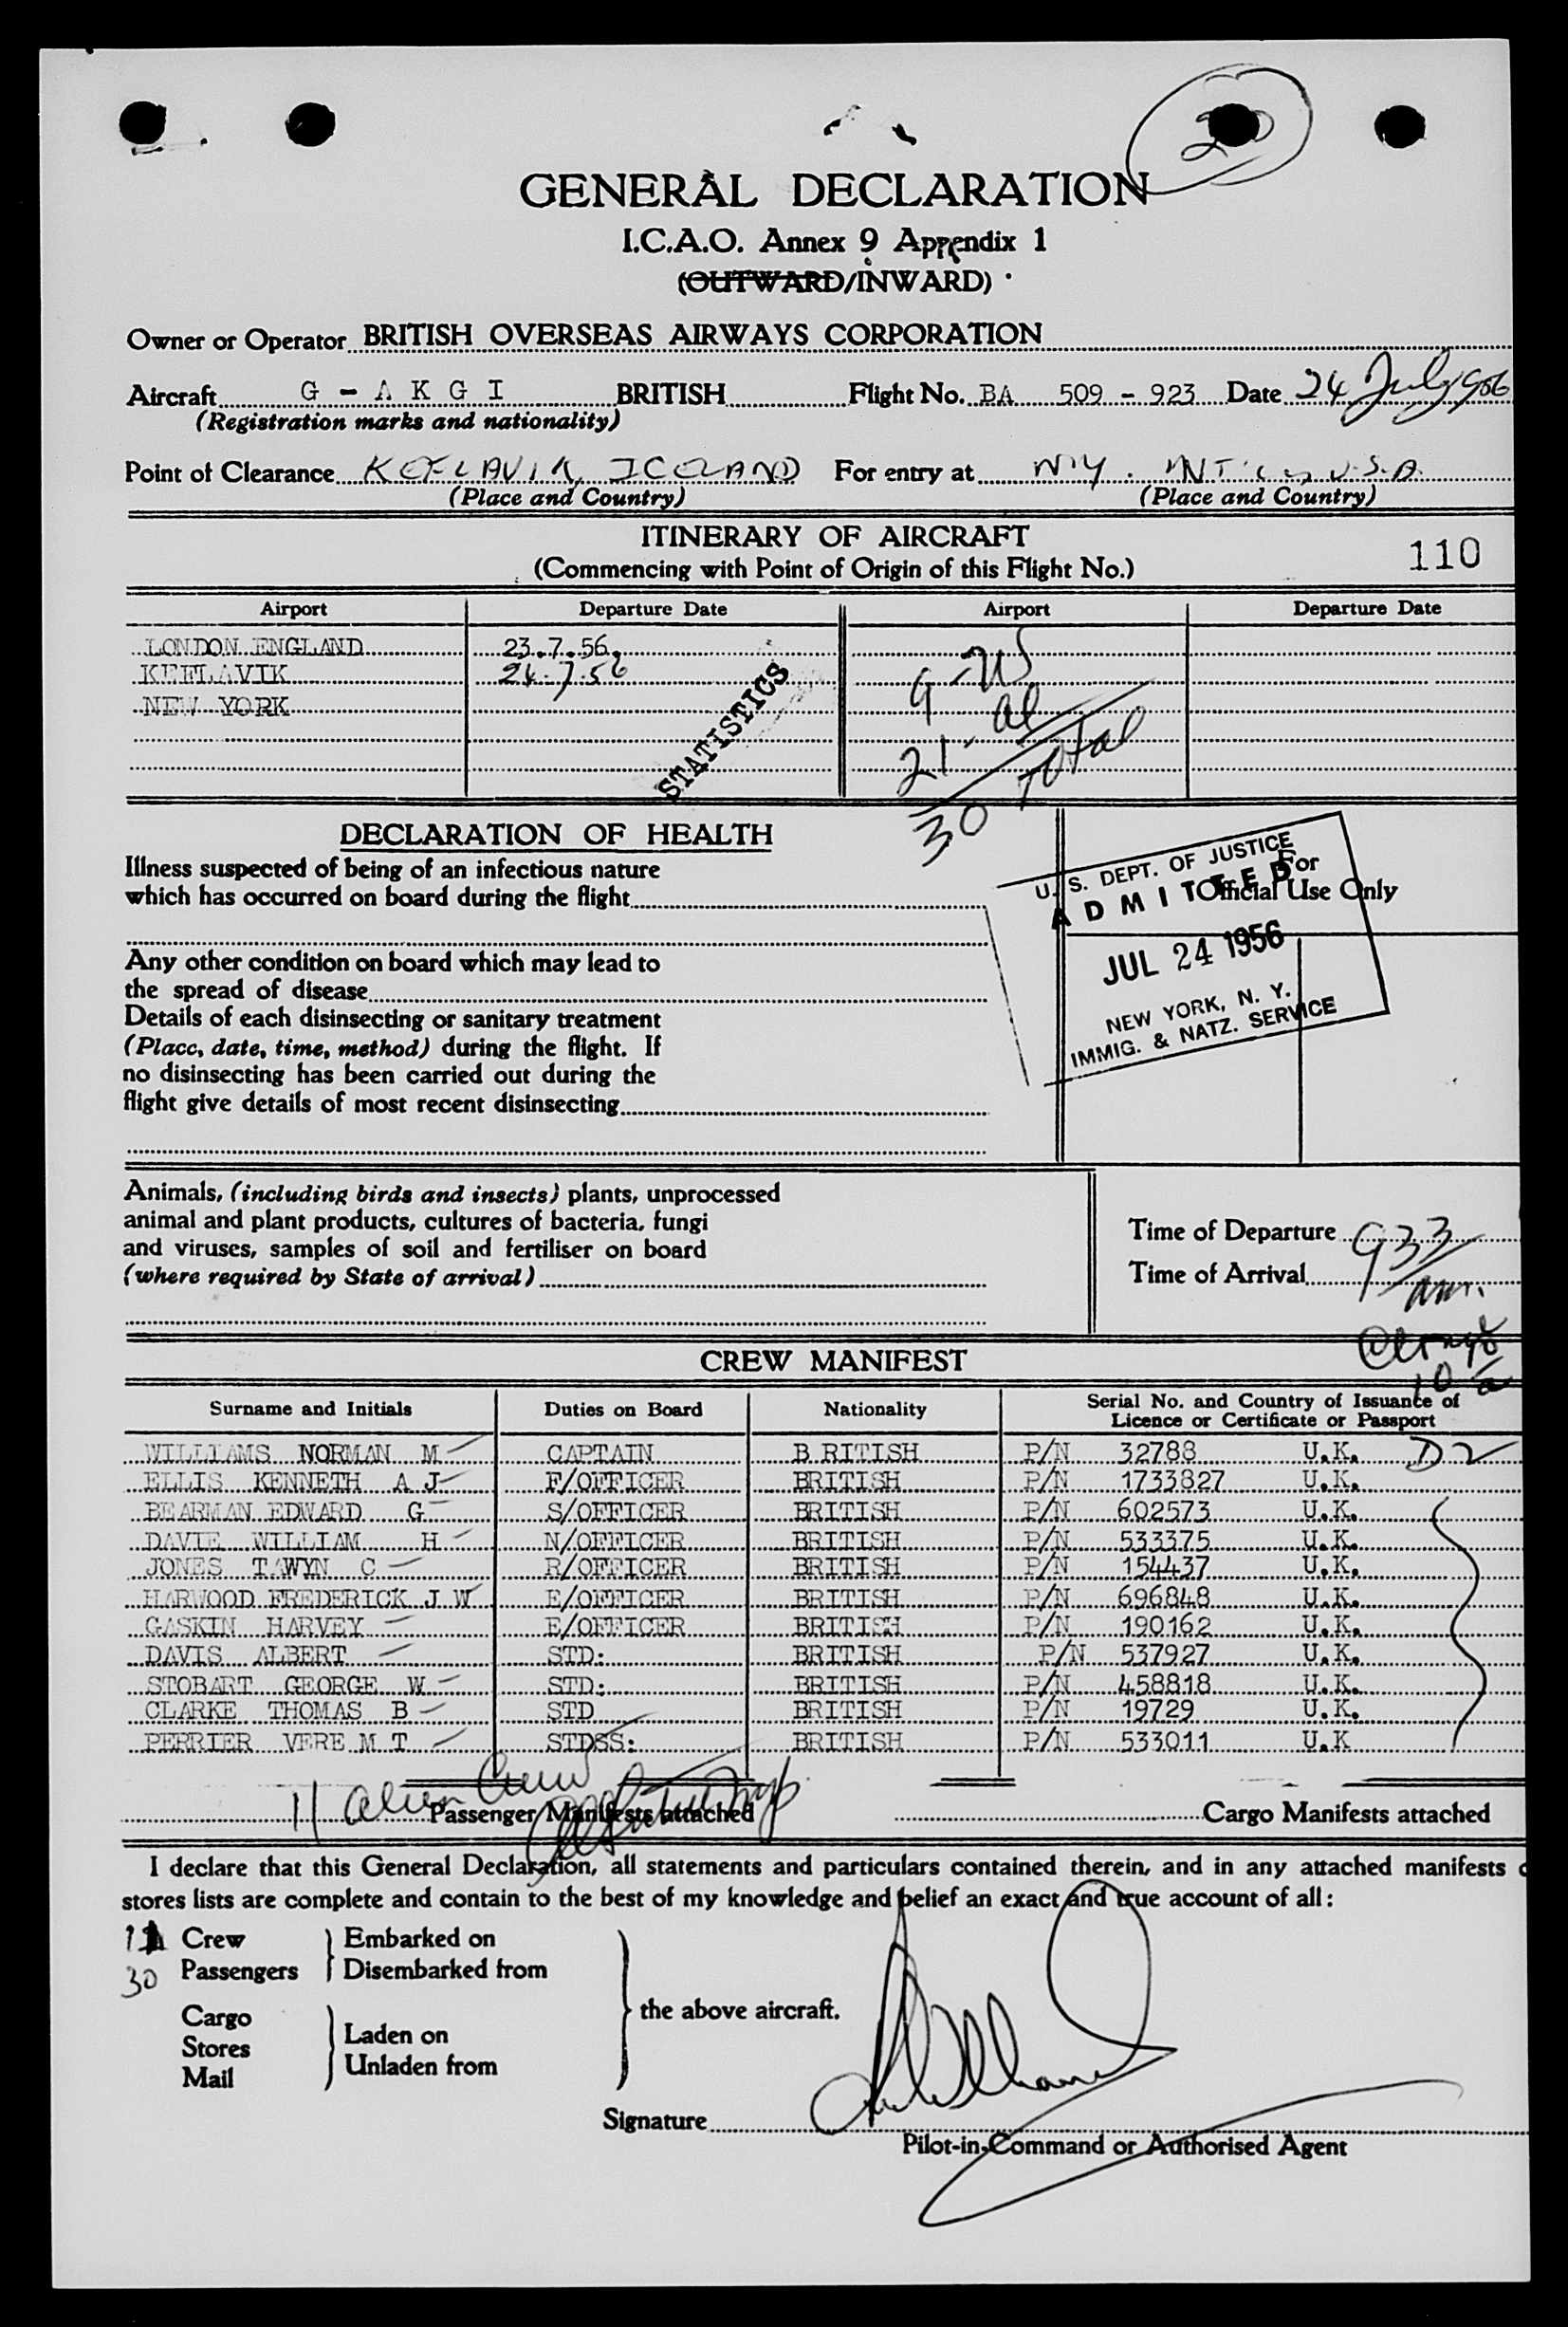 20
GENERAL DECLARATION
I.C.A.O. Annex 9 Appendix 1
(OUTWARD/INWARD)
Owner or Operator BRITISH OVERSEAS AIRWAYS CORPORATION
Aircraft G - A K G I BRITISH Flight No. BA 509 - 923 Date 24 July 1956
(Registration marks and nationality)
Point of Clearance KEFLAVIK, ICELAND For entry at N.Y. U.S.A.
(Place and Country) (Place and Country)
ITINERARY OF AIRCRAFT
(Commencing with Point of Origin of this Flight No.)
110
Airport Departure Date Airport Departure Date
LONDON ENGLAND 23.7.56.
KEFLAVIK 24.7.56
NEW YORK
STATISTICS
9 - US
21 - al
30 Total
DECLARATION OF HEALTH
Illness suspected of being of an infectious nature
which has occurred on board during the flight
Any other condition on board which may lead to
the spread of disease
Details of each disinsecting or sanitary treatment
(Place, date, time, method) during the flight. If
no disinsecting has been carried out during the
flight give details of most recent disinsecting
For
Official Use Only
U. S. DEPT. OF JUSTICE
ADMITTED
JUL 24 1956
NEW YORK, N. Y.
IMMIG. & NATZ. SERVICE
Animals, (including birds and insects) plants, unprocessed
animal and plant products, cultures of bacteria, fungi
and viruses, samples of soil and fertiliser on board
(where required by State of arrival)
Time of Departure 933
Time of Arrival am.
CREW MANIFEST
Surname and Initials Duties on Board Nationality Serial No. and Country of Issuance of
Licence or Certificate or Passport
WILLIAMS NORMAN M CAPTAIN B RITISH P/N 32788 U.K. D2
ELLIS KENNETH A J F/OFFICER BRITISH P/N 1733827 U.K.
BEARMAN EDWARD G S/OFFICER BRITISH P/N 602573 U.K.
DAVIE WILLIAM H N/OFFICER BRITISH P/N 533375 U.K.
JONES TAWYN C R/OFFICER BRITISH P/N 154437 U.K.
HARWOOD FREDERICK J W E/OFFICER BRITISH P/N 696848 U.K.
GASKIN HARVEY E/OFFICER BRITISH P/N 190162 U.K.
DAVIS ALBERT STD: BRITISH P/N 537927 U.K.
STOBART GEORGE W STD: BRITISH P/N 458818 U.K.
CLARKE THOMAS B STD BRITISH P/N 19729 U.K.
PERRIER VERE M T STDSS: BRITISH P/N 533011 U.K
11 alien Crew
Passenger Manifests attached Cargo Manifests attached
I declare that this General Declaration, all statements and particulars contained therein, and in any attached manifests
stores lists are complete and contain to the best of my knowledge and belief an exact and true account of all:
11 Crew Embarked on
30 Passengers Disembarked from
the above aircraft.
Cargo
Stores Laden on
Mail Unladen from
Signature
Pilot-in-Command or Authorised Agent